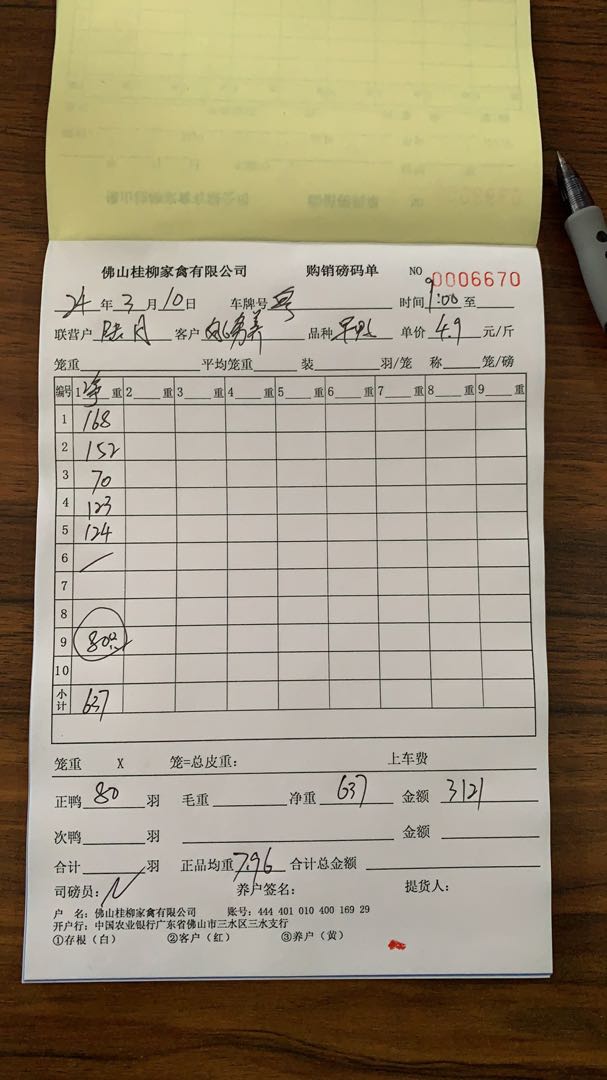 佛山桂柳家禽有限公司 购销磅码单 NO 0006670
24年3月10日 车牌号 时间9:00至
联营户 客户 品种 单价4.9元/斤
笼重 平均笼重 装 羽/笼 称 笼/磅
编号 1净重 2 重 3 重 4 重 5 重 6 重 7 重 8 重 9 重
1 168
2 152
3 70
4 123
5 124
6
7
8
9 80
10
小计 637
笼重 X 笼=总皮重: 上车费
正鸭80羽 毛重 净重637 金额3121
次鸭 羽 金额
合计 羽 正品均重7.96 合计总金额
司磅员: 养户签名: 提货人:
户 名: 佛山桂柳家禽有限公司 账号: 444 401 010 400 169 29
开户行: 中国农业银行广东省佛山市三水区三水支行
①存根(白) ②客户(红) ③养户(黄)